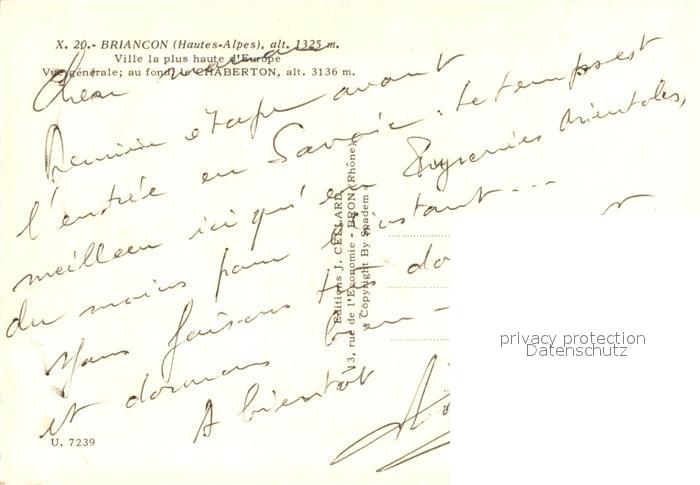 X. 20.- BRIANCON (Hautes-Alpes), alt. 1325 m.
Ville la plus haute d'Europe
Vue générale; au fond, le CHABERTON, alt. 3136 m.
étape avant
l'entrée en Savoie : le temps est
meilleur ici qu'en Pyrénées Orientales,
du moins pour l'instant...
Nous faisons
et dormons bien
A bientôt
Editions J. CELLARD
3, rue de l'Economie - BRON (Rhône)
Copyright By Spadem
U. 7239
privacy protection
Datenschutz